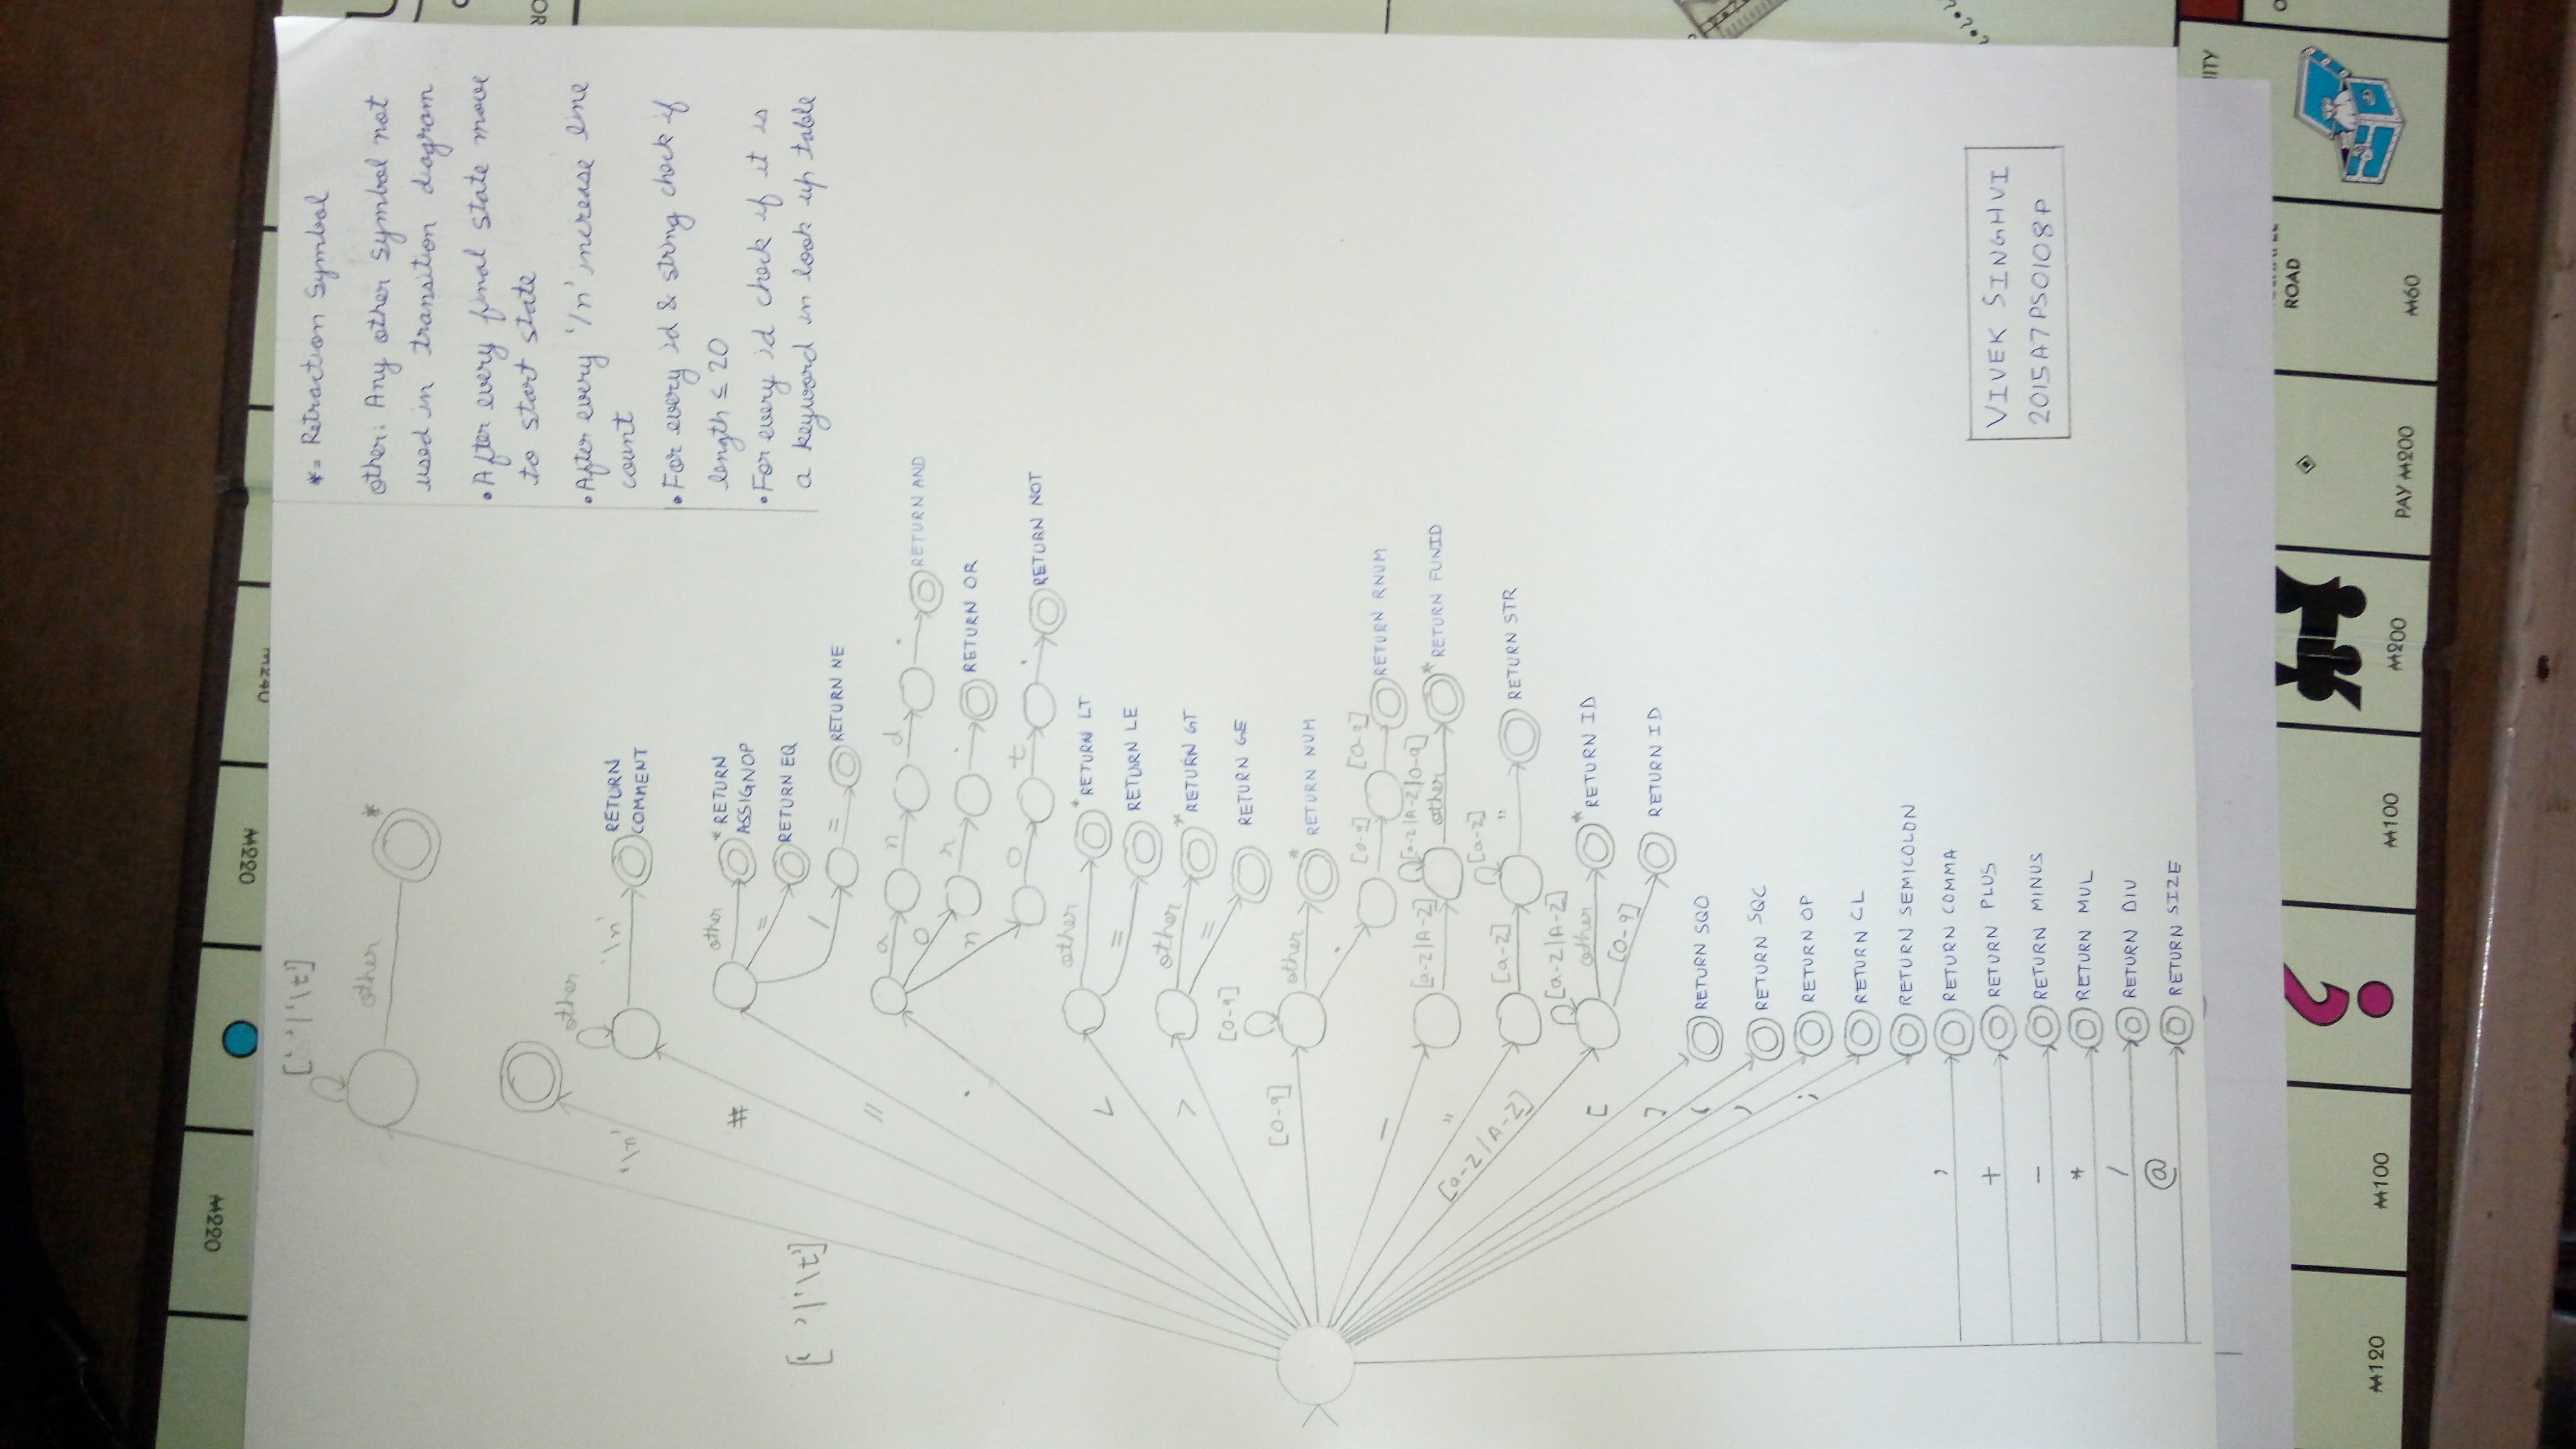 *= Retraction Symbol
other: Any other symbol not
used in transition diagram
• After every final state move
to start state
• After every '/n' increase line
count
• For every id & string check if
length ≤ 20
• For every id check if it is
a keyword in look up table
[' '|'\t']
other
*
[' '|'\t']
'\n'
#
other
'\n'
RETURN
COMMENT
=
other
* RETURN
ASSIGNOP
=
RETURN EQ
/
=
RETURN NE
.
a
n
d
.
RETURN AND
o
r
.
RETURN OR
n
o
t
.
RETURN NOT
<
other
* RETURN LT
=
RETURN LE
>
other
* RETURN GT
=
RETURN GE
[0-9]
[0-9]
other
* RETURN NUM
.
[0-9]
[0-9]
RETURN RNUM
_
[a-z|A-Z]
[a-z|A-Z|0-9]
other
* RETURN FUNID
"
[a-z]
[a-z]
"
RETURN STR
[a-z|A-Z]
[a-z|A-Z]
other
* RETURN ID
[0-9]
RETURN ID
[
RETURN SQO
]
RETURN SQC
(
RETURN OP
)
RETURN CL
;
RETURN SEMICOLON
,
RETURN COMMA
+
RETURN PLUS
-
RETURN MINUS
*
RETURN MUL
/
RETURN DIV
@
RETURN SIZE
VIVEK SINGHVI
2015A7PS0108P
M220
M220
M100
M100
M120
M200
PAY M200
ROAD
M60